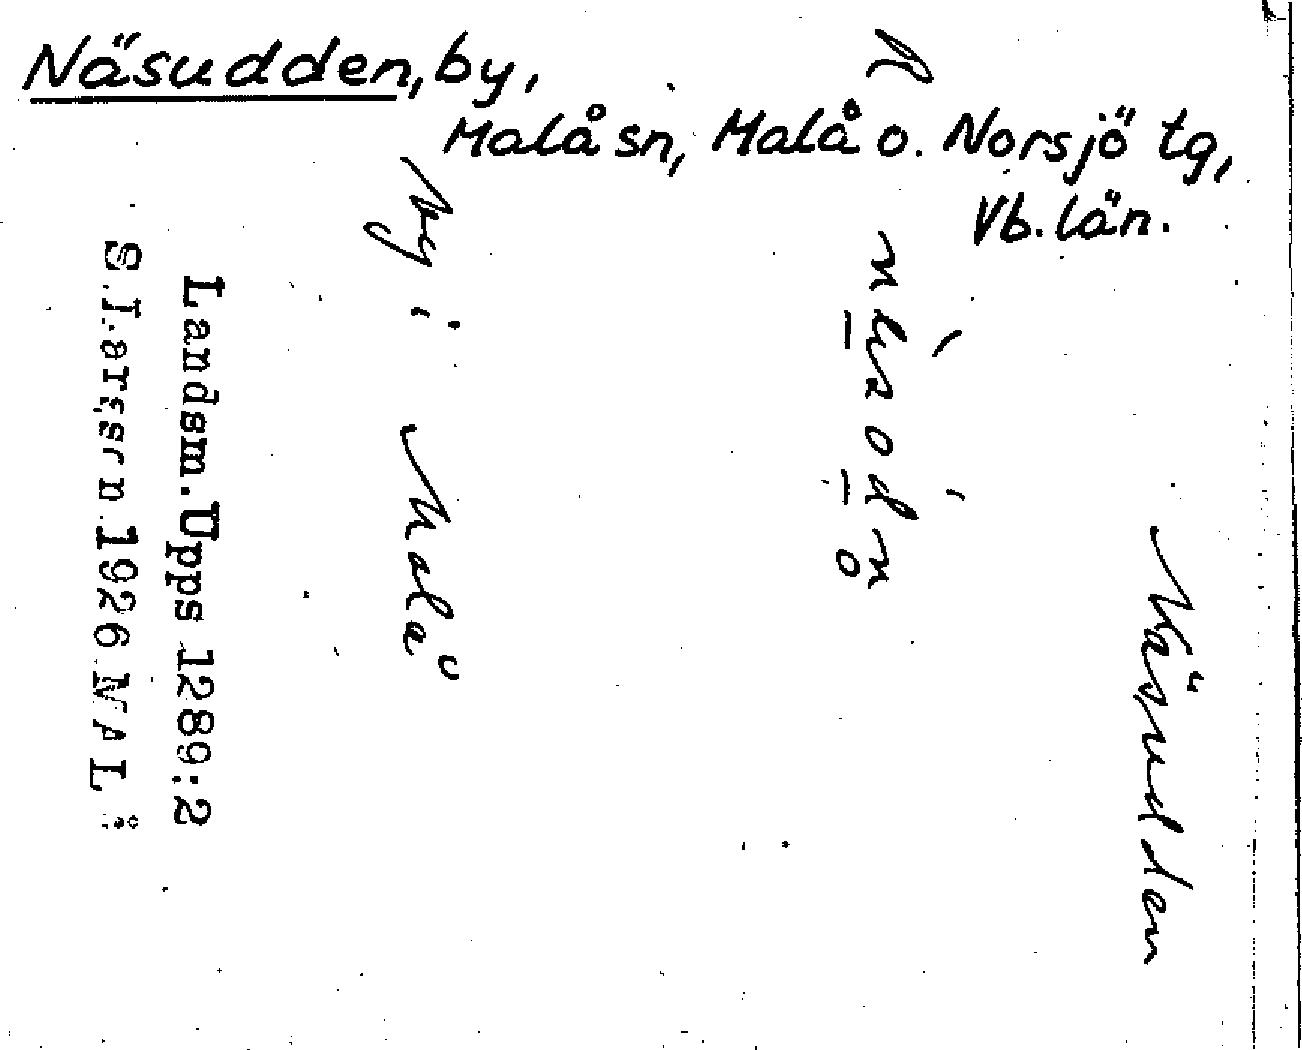 Näsudden, by,
Malå sn, Malå o. Norsjö tg,
Vb. län.
Näsudden
by i Malå
Landsm. Upps 1289:2
S. Larsson 1926 MALÅ